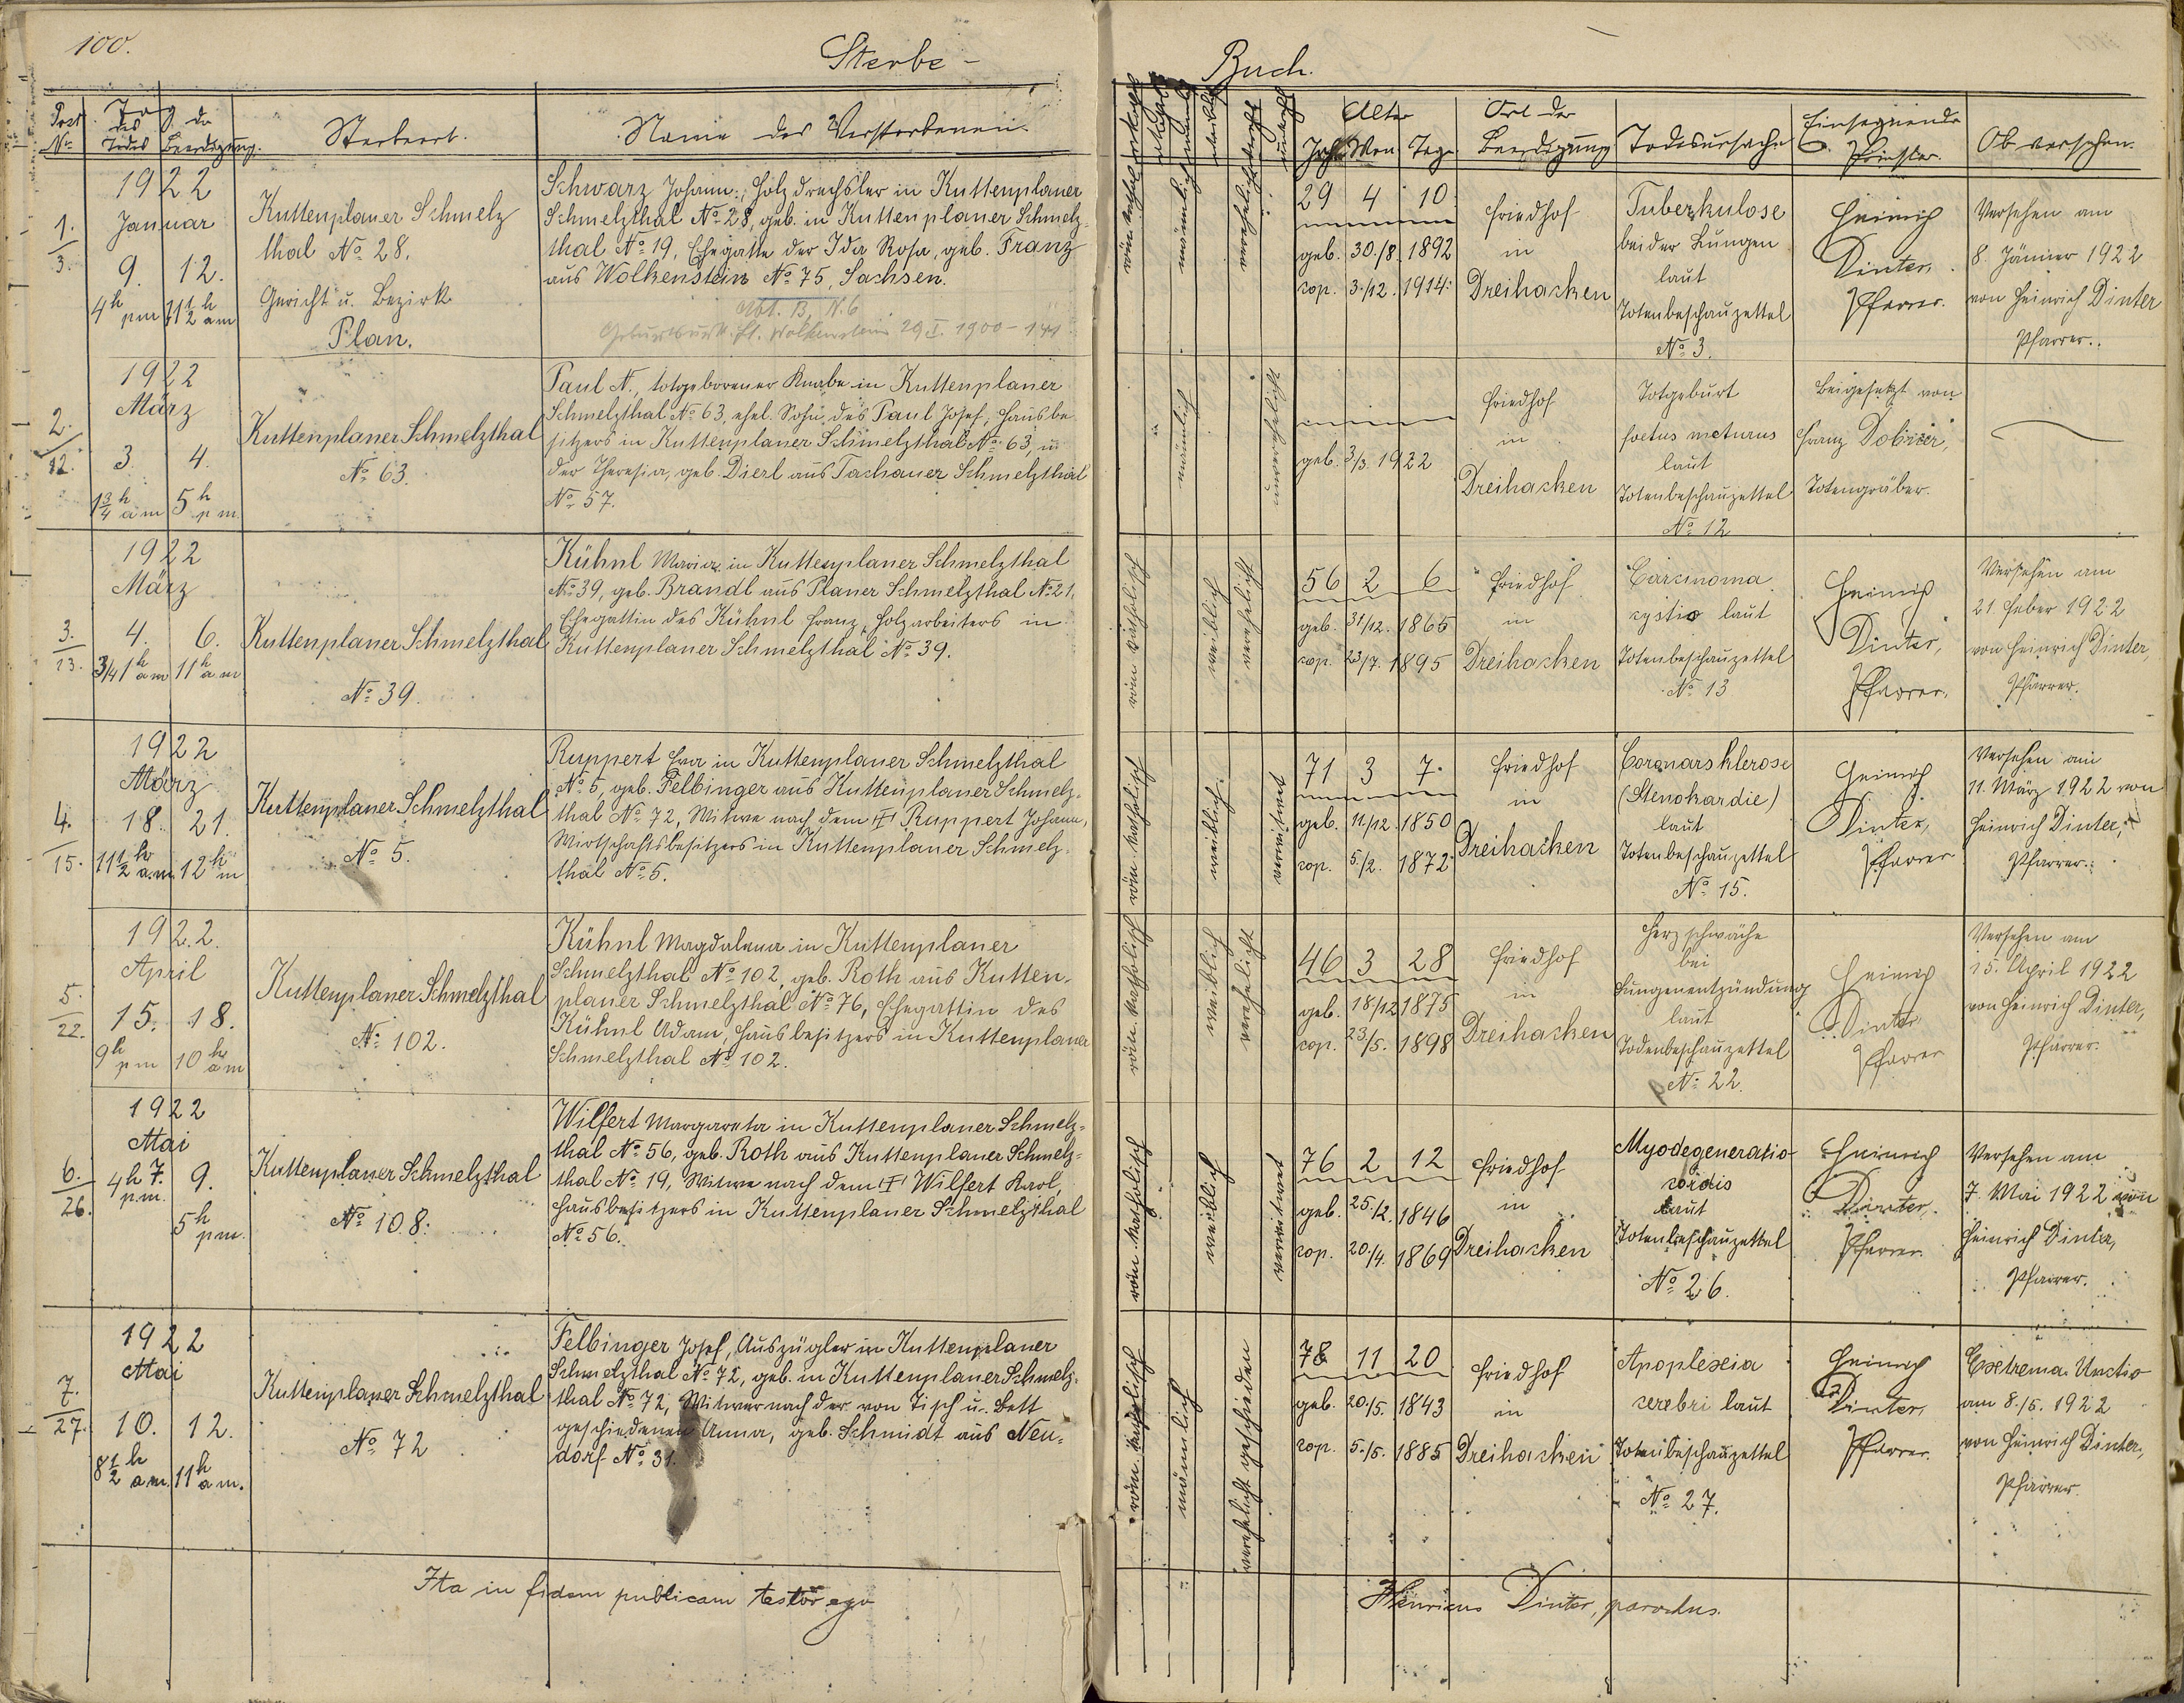 100.
Sterbe-
Buch.
Post
No
Tag
des
Todes
der
Beerdigung.
Sterbeort.
Name des Verstorbenen.
männlich
weiblich
Alter
Jahr Mon. Tage
Ort der
Beerdigung
Todesursache
Einsegnende
Priester.
Ob versehen.
1922
Januar
1.
3.
9. 12.
4h pm 11 1/2 h am
Kuttenplaner Schmelz
thal No 28.
Gericht u. Bezirk
Plan.
Schwarz Johann, Holzdrechsler in Kuttenplaner
Schmelzthal No 28, geb. in Kuttenplaner Schmelz-
thal No 19, Ehegatte der Ida Rosa, geb. Franz
aus Wolkenstein No 75, Sachsen.
Abt. B, N. 6
Wolkenstein 29 I. 1900
röm. kathol.
männlich
verehelicht
29 4 10
geb. 30./8. 1892
cop. 3./12. 1914.
Friedhof
in
Dreihacken
Tuberkulose
beider Lungen
laut
Totenbeschauzettel
No 3.
Heinrich
Dinter,
Pfarrer.
Versehen am
8. Jänner 1922
von Heinrich Dinter
Pfarrer.
1922
März
2.
12.
3 4.
1 3/4 h am 5h pm
Kuttenplaner Schmelzthal
No 63.
Paul N., totgeborener Knabe in Kuttenplaner
Schmelzthal No 63, ehel. Sohn des Paul Josef, Hausbe-
sitzers in Kuttenplaner Schmelzthal No 63, u.
der Theresia, geb. Dierl aus Tachauer Schmelzthal
No 57.
männlich
unverehelicht
geb. 3/3. 1922
Friedhof
in
Dreihacken
Totgeburt
foetus maturus
laut
Totenbeschauzettel
No 12
Beigesetzt von
Franz
Totengräber.
1922
März
3.
13.
4. 6.
3/4 1h am 11h am
Kuttenplaner Schmelzthal
No 39.
Kühnl Maria in Kuttenplaner Schmelzthal
No 39, geb. Brandl aus Planer Schmelzthal No 21,
Ehegattin des Kühnl Franz, Holzarbeiters in
Kuttenplaner Schmelzthal No 39.
röm. katholisch
weiblich
verehelicht
56 2 6
geb. 31/12. 1865
cop. 23/7. 1895
Friedhof
in
Dreihacken
Carcinoma
cystis laut
Totenbeschauzettel
No 13
Heinrich
Dinter,
Pfarrer.
Versehen am
21. Feber 1922
von Heinrich Dinter,
Pfarrer.
1922
März
4.
15.
18. 21.
11 1/2 h am 12h m
Kuttenplaner Schmelzthal
No 5.
Ruppert Eva in Kuttenplaner Schmelzthal
No 5, geb. Felbinger aus Kuttenplaner Schmelz-
thal No 72, Witwe nach dem † Ruppert Johann,
Wirtschaftsbesitzers in Kuttenplaner Schmelz-
thal No 5.
röm. katholisch
weiblich
verwitwet
71 3 7
geb. 11/12. 1850
cop. 5/2. 1872
Friedhof
in
Dreihacken
Coronarsklerose
(Stenokardie)
laut
Totenbeschauzettel
No 15.
Heinrich
Dinter,
Pfarrer
Versehen am
11. März 1922 von
Heinrich Dinter,
Pfarrer.
1922.
April
5.
22.
15. 18.
9h pm 10h am
Kuttenplaner Schmelzthal
No 102.
Kühnl Magdalena in Kuttenplaner
Schmelzthal No 102, geb. Roth aus Kutten-
planer Schmelzthal No 76, Ehegattin des
Kühnl Adam, Hausbesitzers in Kuttenplaner
Schmelzthal No 102.
röm. katholisch
weiblich
verehelicht
46 3 28
geb. 18/12 1875
cop. 23/5. 1898
Friedhof
in
Dreihacken
Herzschwäche
bei
Lungenentzündung
laut
Todenbeschauzettel
No 22.
Heinrich
Dinter
Pfarrer
Versehen am
15. April 1922
von Heinrich Dinter,
Pfarrer.
1922
Mai
6.
26.
4h 7. pm. 9.
5h pm.
Kuttenplaner Schmelzthal
No 108.
Wilfert Margareta in Kuttenplaner Schmelz-
thal No 56, geb. Roth aus Kuttenplaner Schmelz-
thal No 19, Witwe nach dem † Wilfert Karl,
Hausbesitzers in Kuttenplaner Schmelzthal
No 56.
röm. katholisch
weiblich
verwitwet
76 2 12
geb. 25./2. 1846
cop. 20./4. 1869
Friedhof
in
Dreihacken
Myodegeneratio
cordis
laut
Totenbeschauzettel
No 26.
Heinrich
Dinter,
Pfarrer.
Versehen am
7. Mai 1922 von
Heinrich Dinter,
Pfarrer.
1922
Mai
7.
27.
10. 12.
8 1/2 h am. 11h am.
Kuttenplaner Schmelzthal
No 72
Felbinger Josef, Auszügler in Kuttenplaner
Schmelzthal No 72, geb. in Kuttenplaner Schmelz-
thal No 72, Witwer nach der von Tisch u. Bett
geschiedenen Anna, geb. Schmidt aus Neu-
dorf No 31.
röm. katholisch
männlich
verehelicht geschieden
78 11 20
geb. 20./5. 1843
cop. 5./5. 1885
Friedhof
in
Dreihacken
Apoplexia
cerebri laut
Totenbeschauzettel
No 27.
Heinrich
Dinter,
Pfarrer.
Extrema Unctio
am 8./5. 1922
von Heinrich Dinter,
Pfarrer.
Ita in fidem publicam testor ego
Henricus Dinter, parochus.